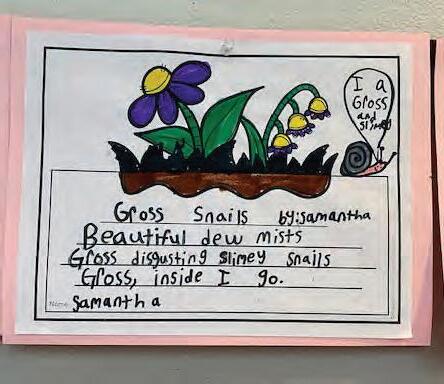 I a
Gross
and
slimey
Gross Snails by:samantha
Beautiful dew mists
Gross disgusting slimey snails
Gross, inside I go.
Name:
Samantha